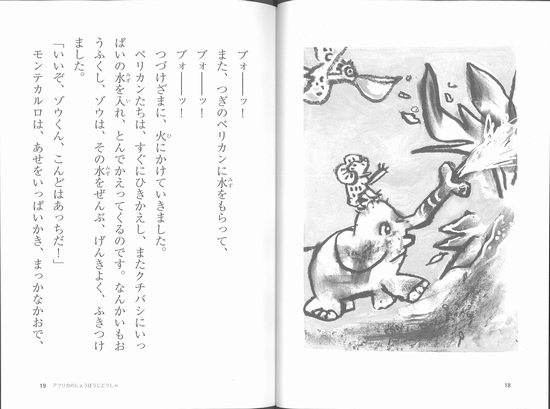 ブォーーッ!
また、つぎのペリカンに水をもらって、
ブォーーッ!
ブォーーッ!
つづけざまに、火にかけていきました。
ペリカンたちは、すぐにひきかえし、またクチバシにいっ
ぱいの水を入れ、とんでかえってくるのです。なんかいもお
うふくし、ゾウは、その水をぜんぶ、げんきよく、ふきつけ
ました。
「いいぞ、ゾウくん、こんどはあっちだ!」
モンテカルロは、あせをいっぱいかき、まっかなかおで、
19 アフリカのしょうぼうじどうしゃ
18